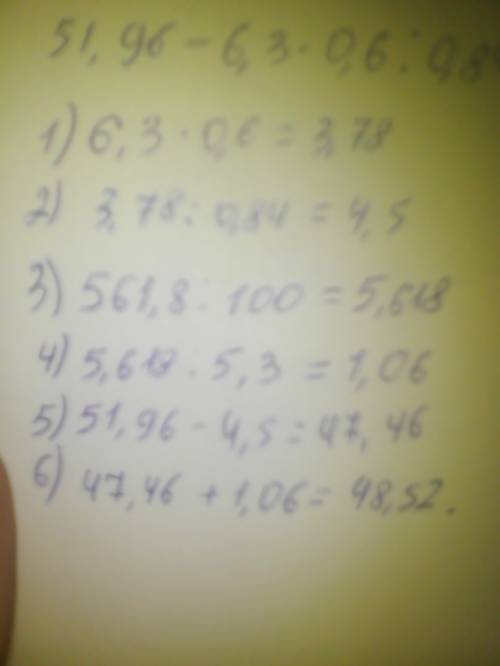 51,96 - 6,3 · 0,6 : 0,8
1) 6,3 · 0,6 = 3,78
2) 3,78 : 0,84 = 4,5
3) 561,8 : 100 = 5,618
4) 5,618 : 5,3 = 1,06
5) 51,96 - 4,5 = 47,46
6) 47,46 + 1,06 = 48,52.